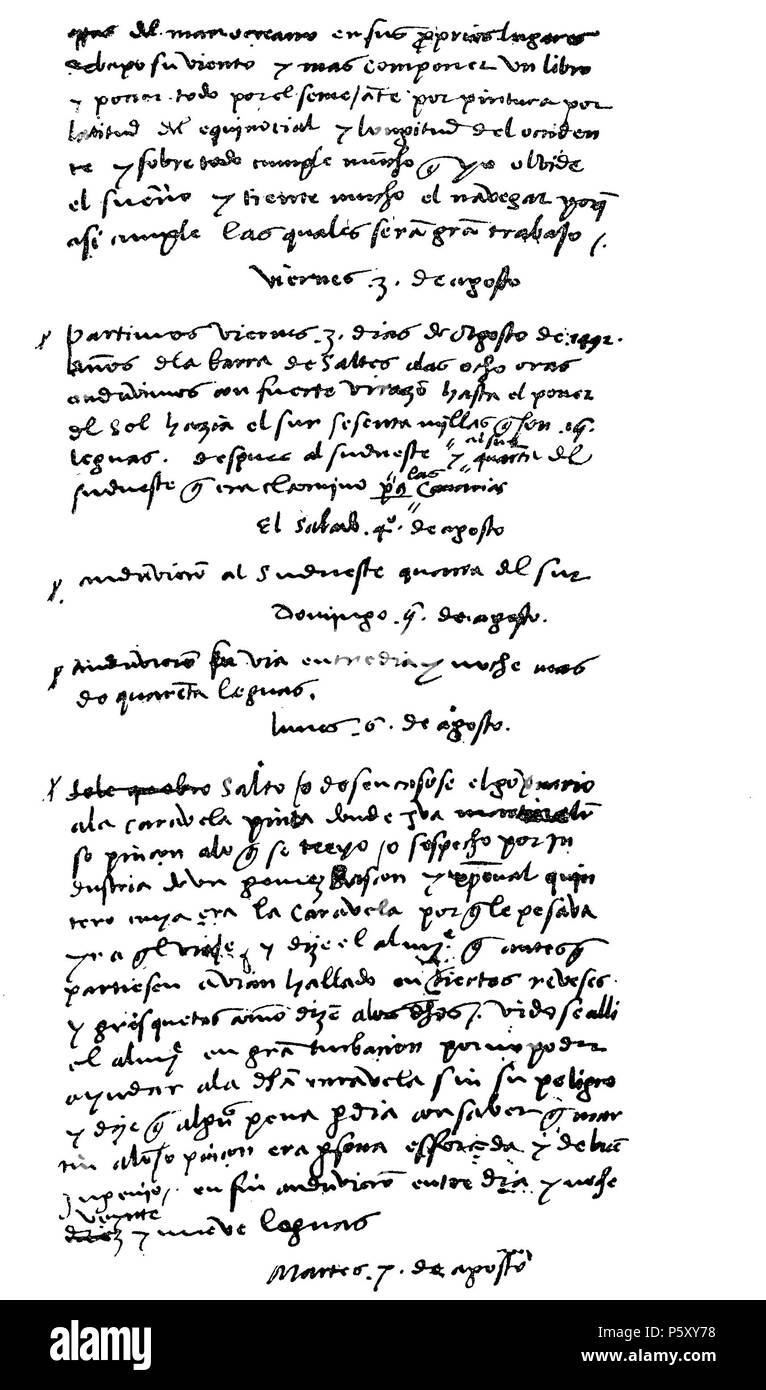 del mar oceano en sus proprios lugares
debaxo su viento y mas componer un libro
y poner todo por el semejāte por pintura por
latitud del equinocial y longitud del occiden
te y sobre todo cumple mūcho q̄ yo olvide
el sueño y tiente mucho el navegar porq̄
asi cumple las quales serā grā trabajo /.
viernes .3. de agosto
partimos viernes .3. dias de agosto de 1492.
años dla barra de Saltes alas ocho oras
anduvimos con fuerte virazō hasta el poner
del Sol hazia el sur sesenta millas q̄ son .15.
leguas. despues al sudueste y al sur quarta del
sudueste q̄ era el camino pa las Canarias
El sabado .4o. de agosto
anduvierō al Sudueste quarta del sur
Domingo .5. de agosto.
anduvierō su via entre dia y noche mas
de quarēta leguas.
lunes .6. de agosto.
Salto /o desencasose el governario
ala caravela pinta donde yva martin alō
so pinçon alo q̄ se creyo /o sospecho por in
dustria de un gomez Rascon y xp̄oval quin
tero cuya era la caravela por q̄ le pesava
yr a ql viaje y dize el almie q̄ antes q̄
partiesen avian hallado en ciertos reveses
y grisquetas como dizē alos dhos /. vidose alli
el almie en grā turbacion por no poder
ayudar ala dha caravela sin su peligro
y dize q̄ algūa pena pdia con saber q̄ mar
tin alōso pinçon era psona esforçada y de buē
ingenio /. en fin anduvierō entre dia y noche
veynte
diez y nueve leguas
Martes .7. de agosto
alamy
Image ID: P5XY78
www.alamy.com